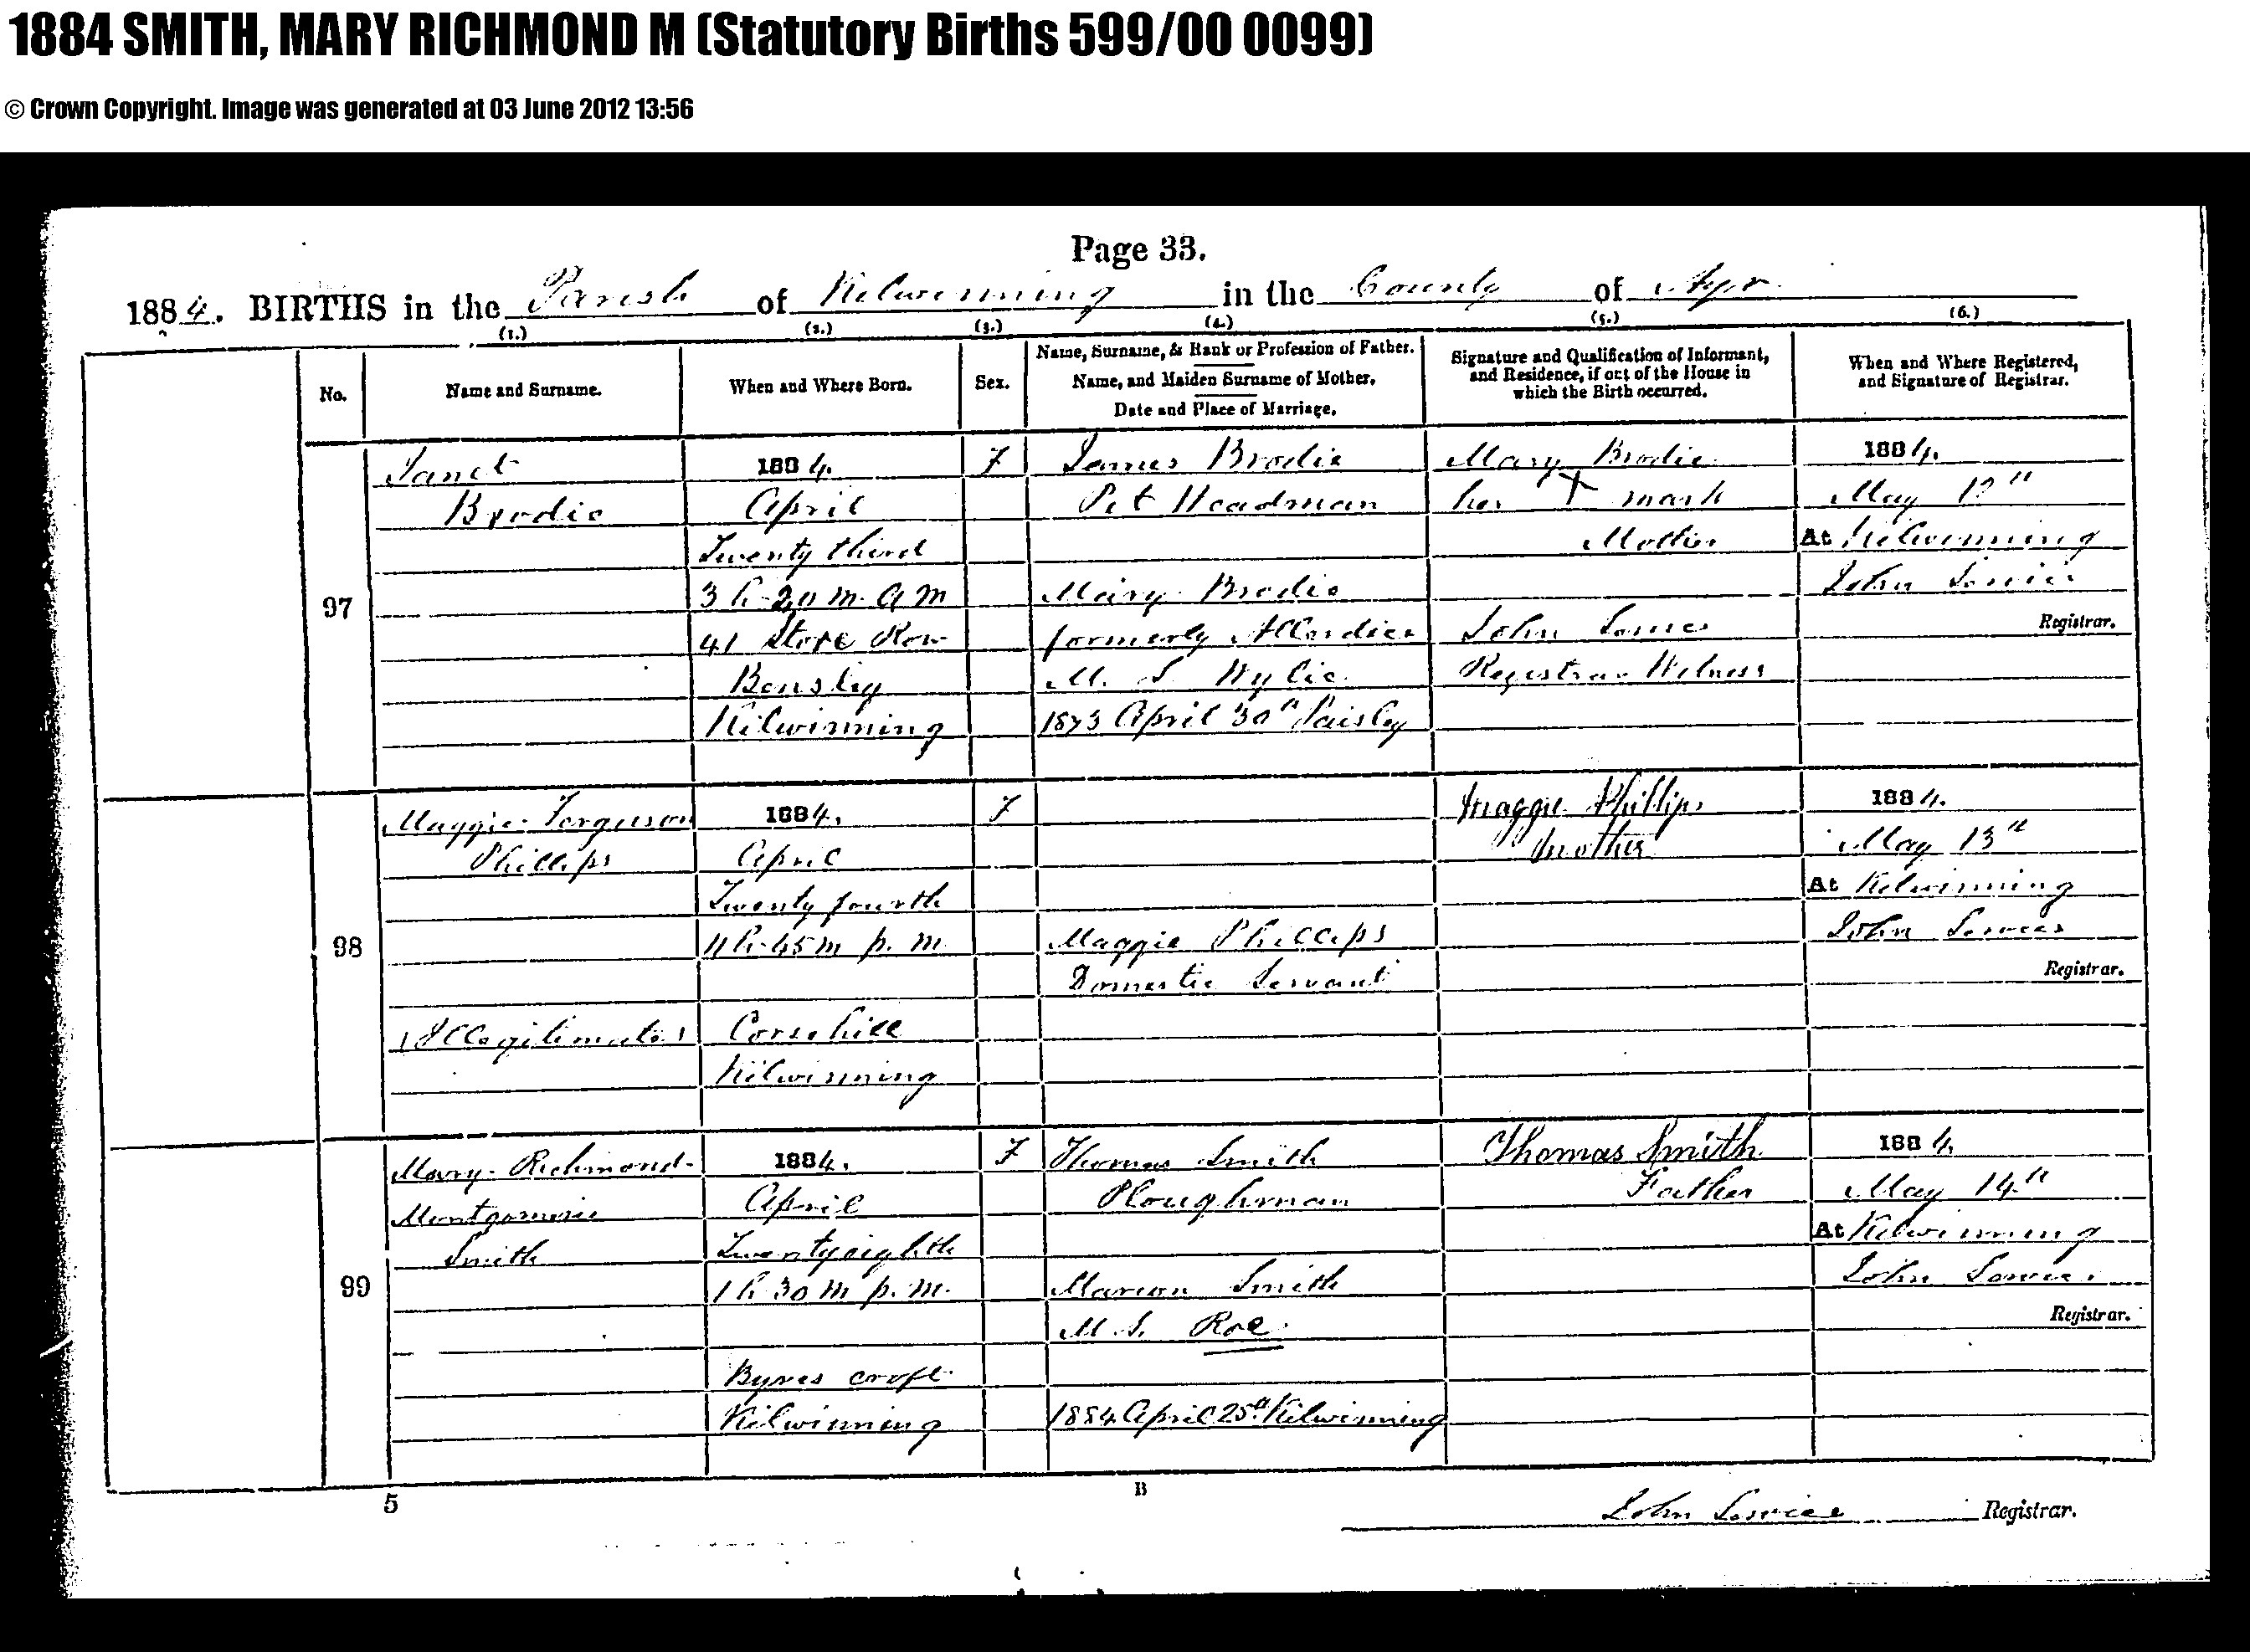 1884 SMITH, MARY RICHMOND M (Statutory Births 599/00 0099)
© Crown Copyright. Image was generated at 03 June 2012 13:56
Page 33.
1884. BIRTHS in the Parish of Kilwinning in the County of Ayr
(1.) (2.) (3.) (4.) (5.) (6.)
No.
Name and Surname.
When and Where Born.
Sex.
Name, Surname, & Rank or Profession of Father.
Name, and Maiden Surname of Mother.
Date and Place of Marriage.
Signature and Qualification of Informant,
and Residence, if out of the House in
which the Birth occurred.
When and Where Registered,
and Signature of Registrar.
97
Janet
Brodie
1884.
April
Twenty third
3 h 20 m. a m
41 Store Row
Bensley
Kilwinning
F
James Brodie
Pit Headman
Mary Brodie
formerly Allardice
M. S. Wylie
1873 April 30th Paisley
Mary Brodie
her X mark
Mother
John
Registrar Witness
1884.
May 12th
At Kilwinning
John
Registrar.
98
Maggie Ferguson
Phillips
(Illegitimate)
1884.
April
Twenty fourth
11 h. 45 m p. m.
Corsehill
Kilwinning
F
Maggie Phillips
Domestic Servant
Maggie Phillips
Mother
1884.
May 13th
At Kilwinning
John
Registrar.
99
Mary Richmond
Montgomerie
Smith
1884.
April
Twenty eighth
1 h 30 m p. m.
Byres croft
Kilwinning
F
Thomas Smith
Ploughman
Marion Smith
M. S. Roe
1884 April 25th Kilwinning
Thomas Smith
Father
1884.
May 14th
At Kilwinning
John
Registrar.
5
B
John
Registrar.